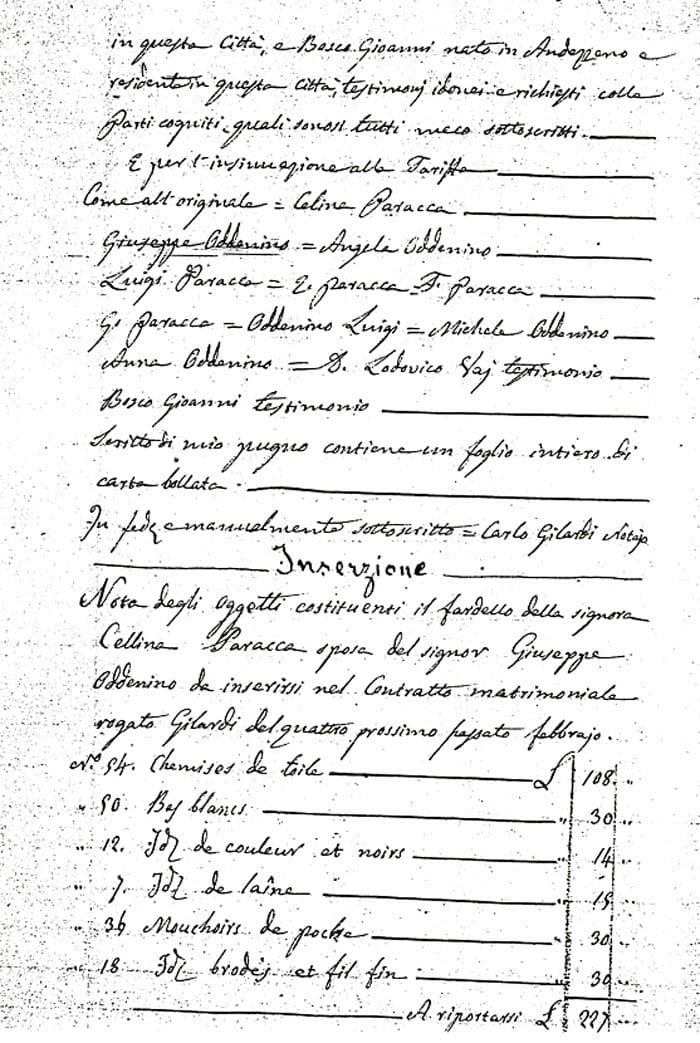 in questa Città, e Bosco Gioanni nato in Andezzeno e
residente in questa Città, testimonj idonei e richiesti colle
Parti cogniti, quali sonosi tutti meco sottoscritti.
E per l'insinuazione alla Tariffa
Come all'originale = Celina Paracca
Giuseppe Oddenino = Angela Oddenino
Luigi Paracca = E. Paracca = F. Paracca
G. Paracca = Oddenino Luigi = Michele Oddenino
Anna Oddenino = D. Lodovico Vaj testimonio
Bosco Gioanni testimonio
Scritto di mio pugno contiene un foglio intiero di
carta bollata.
In fede e manualmente sottoscritto = Carlo Gilardi Notajo
Inserzione
Nota degli oggetti costituenti il fardello della signora
Cellina Paracca sposa del signor Giuseppe
Oddenino da inserirsi nel Contratto matrimoniale
rogato Gilardi del quattro prossimo passato febbrajo.
N.° 54. Chemises de toile £ 108. "
" 50. Bas blancs " 30 "
" 12. Id. de couleur et noirs " 14 "
" 7. Id. de laîne " 15 "
" 36 Mouchoirs de poche " 30 "
" 18 Id. brodés et fil fin " 30 "
A riportarsi £ 227 "